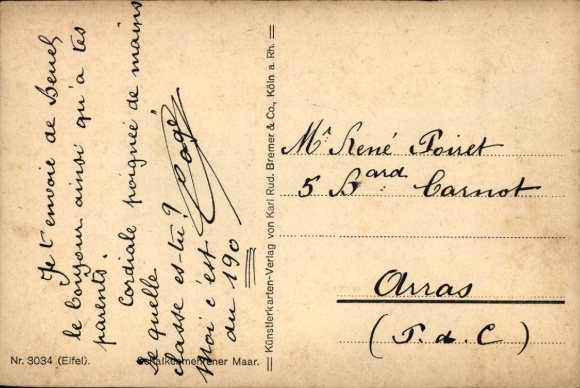 Je t'envoie de
le bonjour ainsi qu'a tes
parents.
Cordiale poignée de mains
de quelle
classe es-tu?
Moi c'est
du 190
Künstlerkarten-Verlag von Karl Rud. Bremer & Co., Köln a. Rh.
Mr René Poiret
5 Bard Carnot
Arras
(P. d. C)
Nr. 3034 (Eifel). Schalkenmehrener Maar.